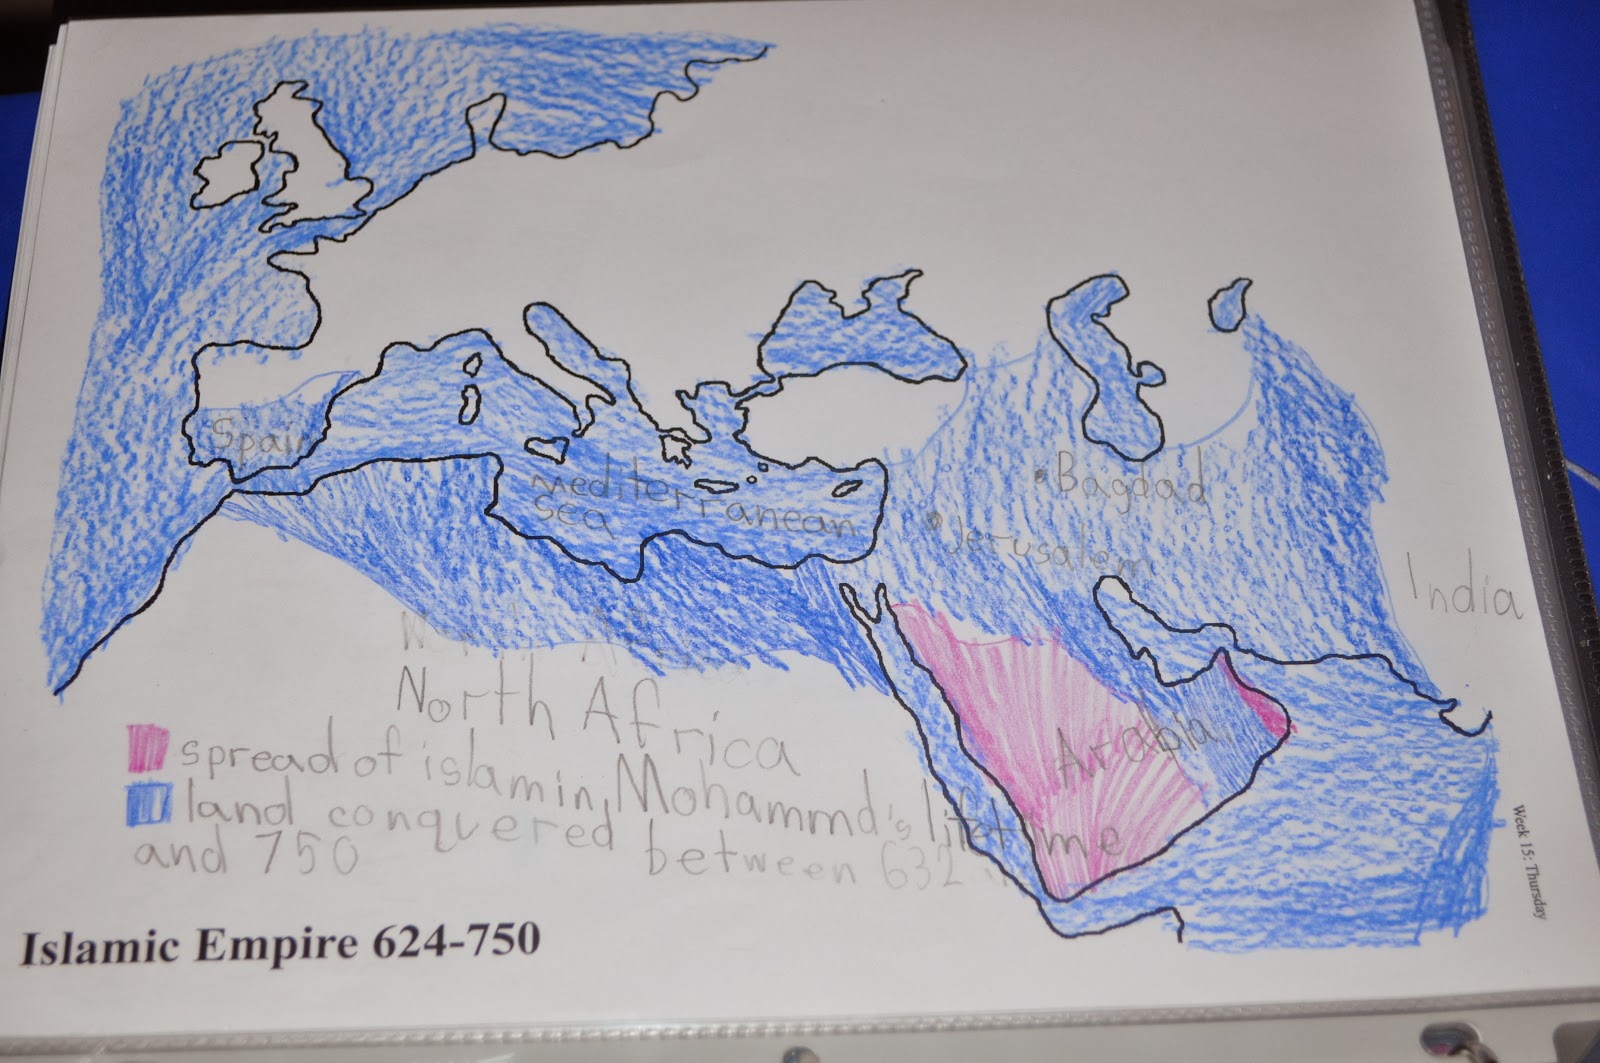 Spain
Mediterranean
sea
Bagdad
Jerusalem
India
North Africa
Arabia
spread of islam in Mohammd's lifetime
land conquered between 632
and 750
Islamic Empire 624-750
Week 15: Thursday